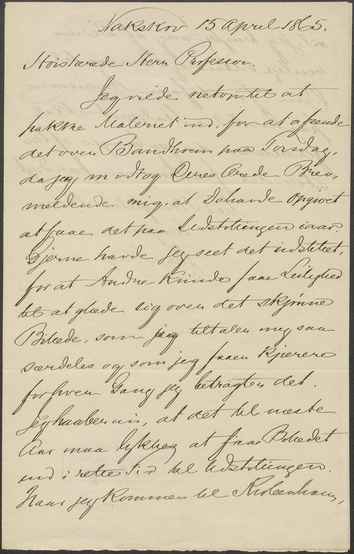 Nakskov 15 April 1865.
Høistærede Herr Professor.
Jeg vilde netop til at
pakke Maleriet ind, for at afsende
det over Bandholm paa Torsdag,
da jeg modtog Deres Ærede Brev,
meldende mig, at De havde opgivet
at faae det paa Udstillingen iaar
Gjerne havde jeg seet det udstillet,
for at Andre kunde faae Leilighed
til at glæde sig over det skjønne
Billede, som jeg tiltaler mig saa
særdeles og som jeg faaer kjærere
for hver Gang jeg betragter det.
Jeg haaber nu, at det til næste
Aar maa lykkes at faae Billedet
ind i rette Tid til Udstillingen.
Naar jeg kommer til Kiøbenhavn,